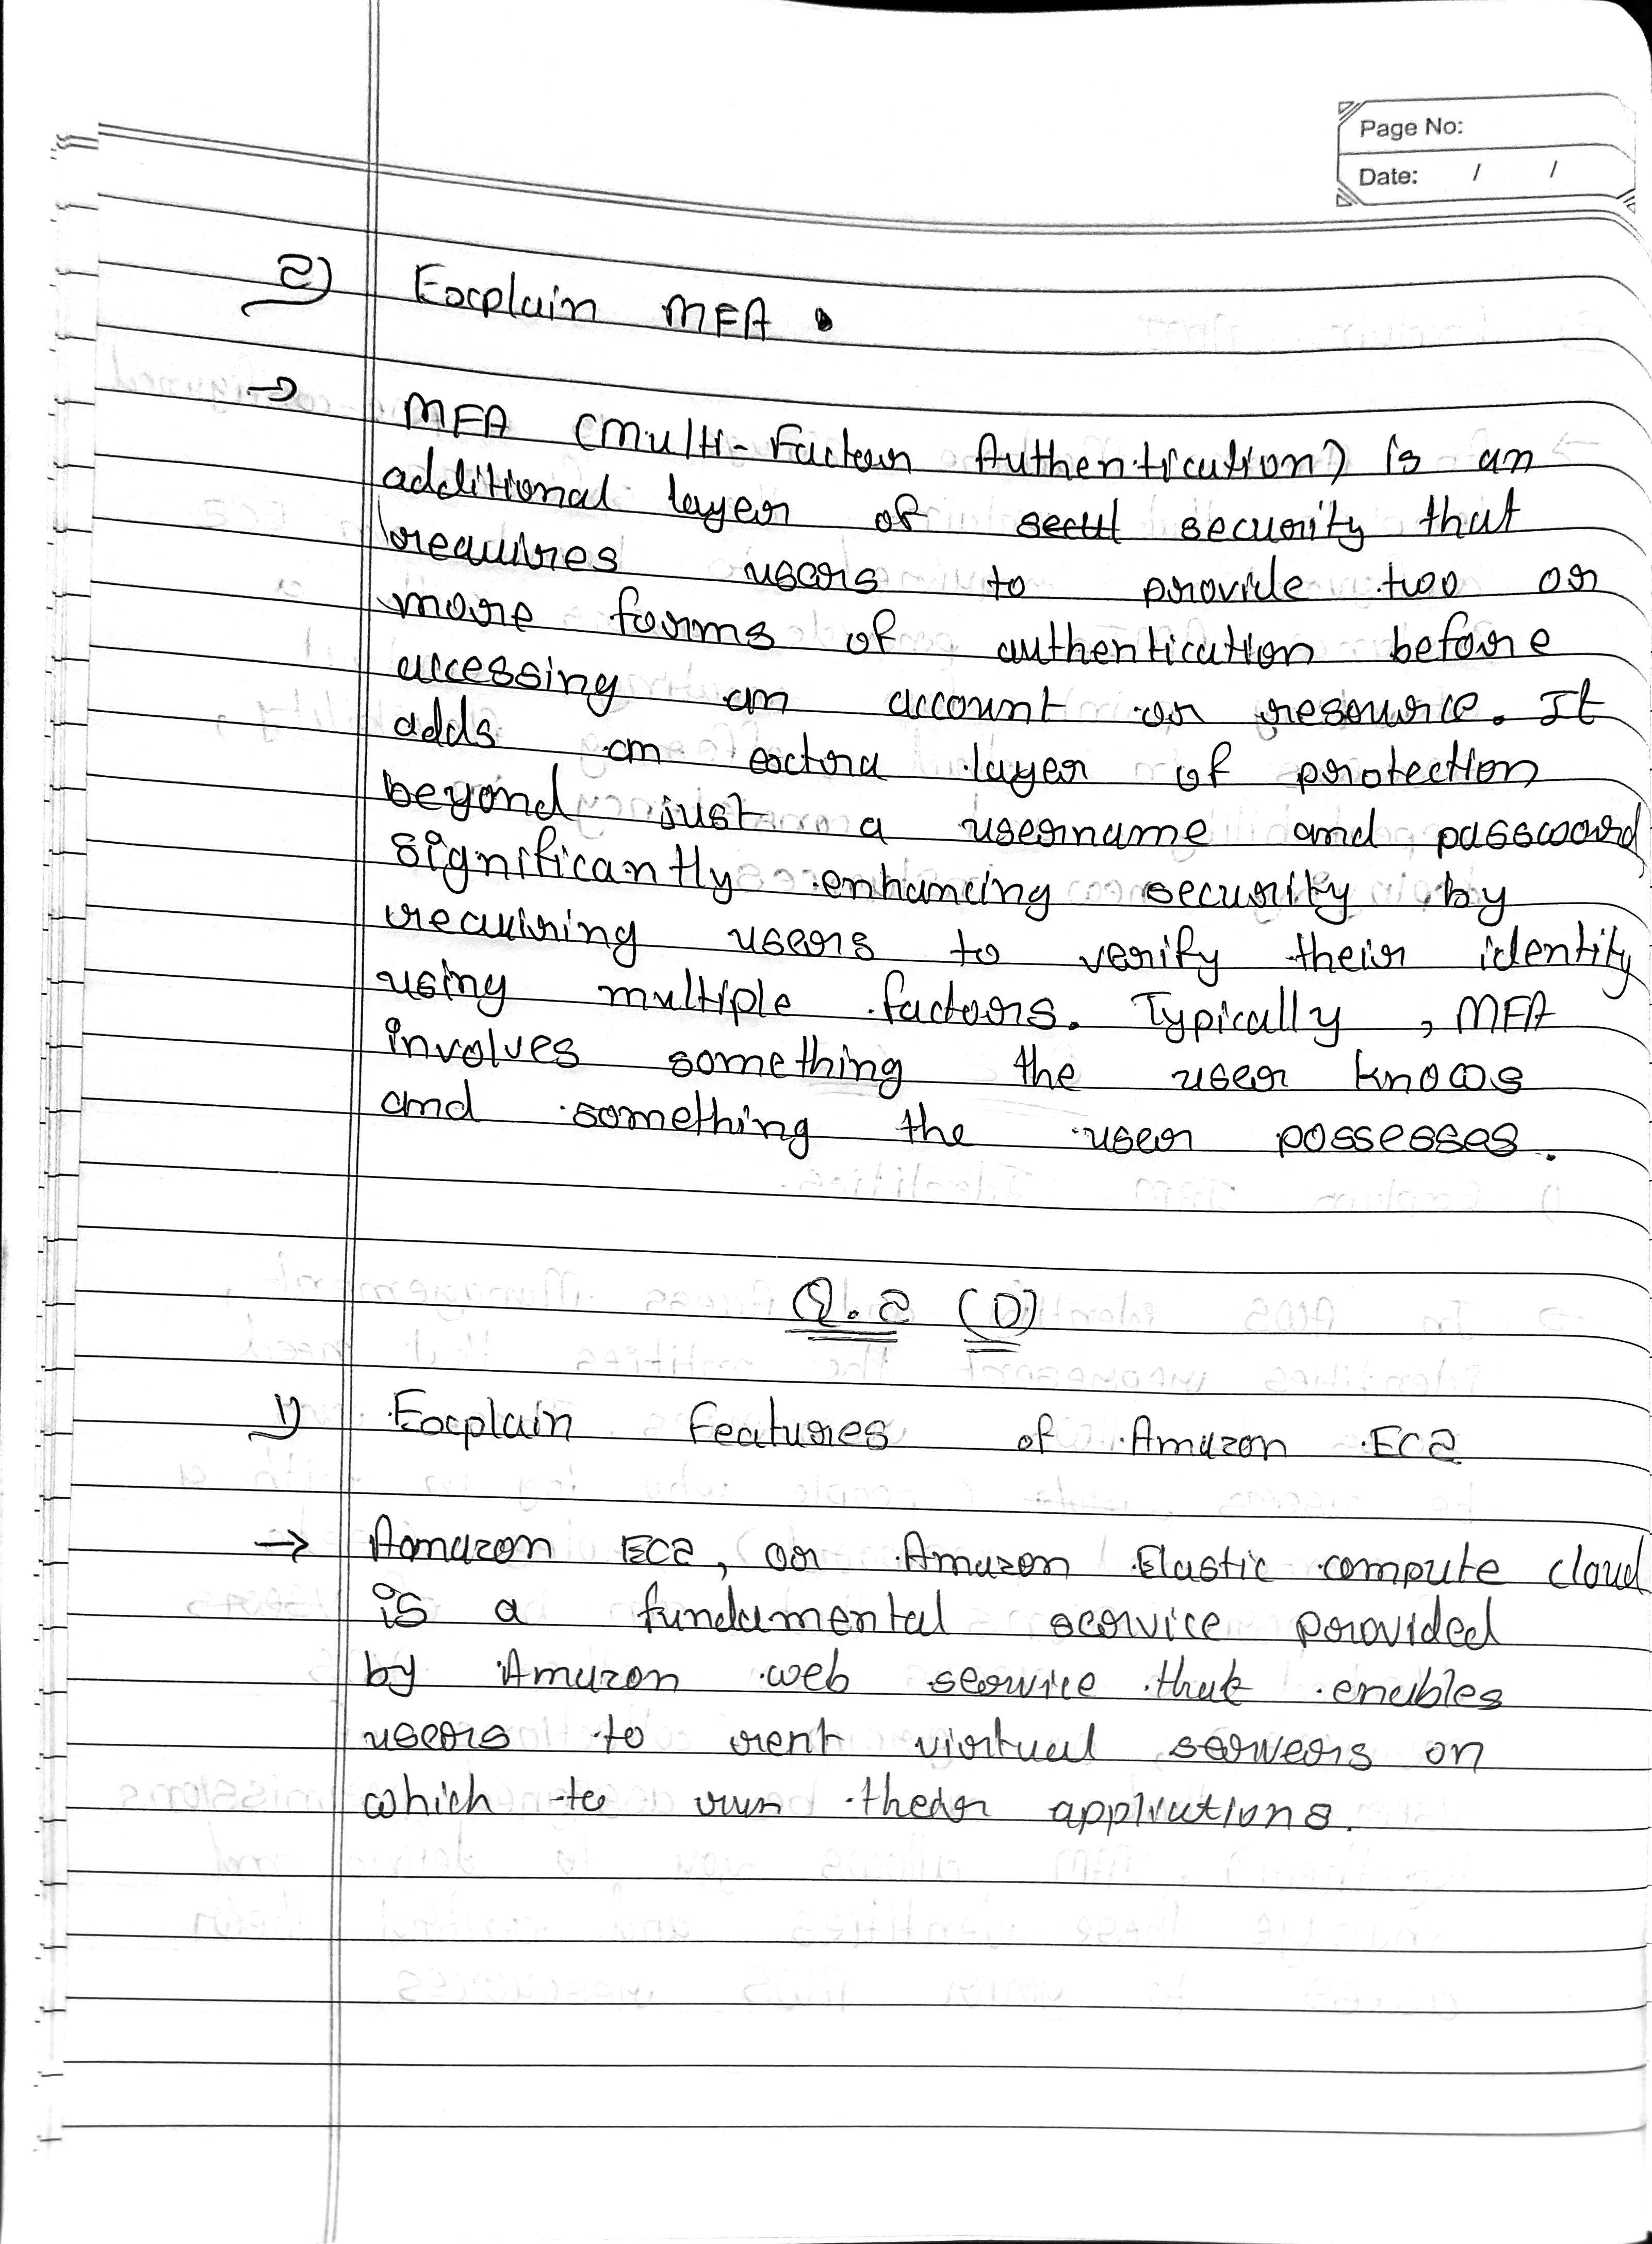 Page No:
Date: / /
2) Explain MFA.
→ MFA (Multi-Factor Authentication) is an
additional layer of secut security that
requires users to provide two or
more forms of authentication before
accessing an account or resource. It
adds an extra layer of protection
beyond just a username and password,
significantly enhancing security by
requiring users to verify their identity
using multiple factors. Typically, MFA
involves something the user knows
and something the user possesses.
Q.2 (D)
1) Explain Features of Amazon EC2
→ Amazon EC2, or Amazon Elastic compute cloud
is a fundamental service provided
by Amazon web service that enables
users to rent virtual servers on
which to run their applications.